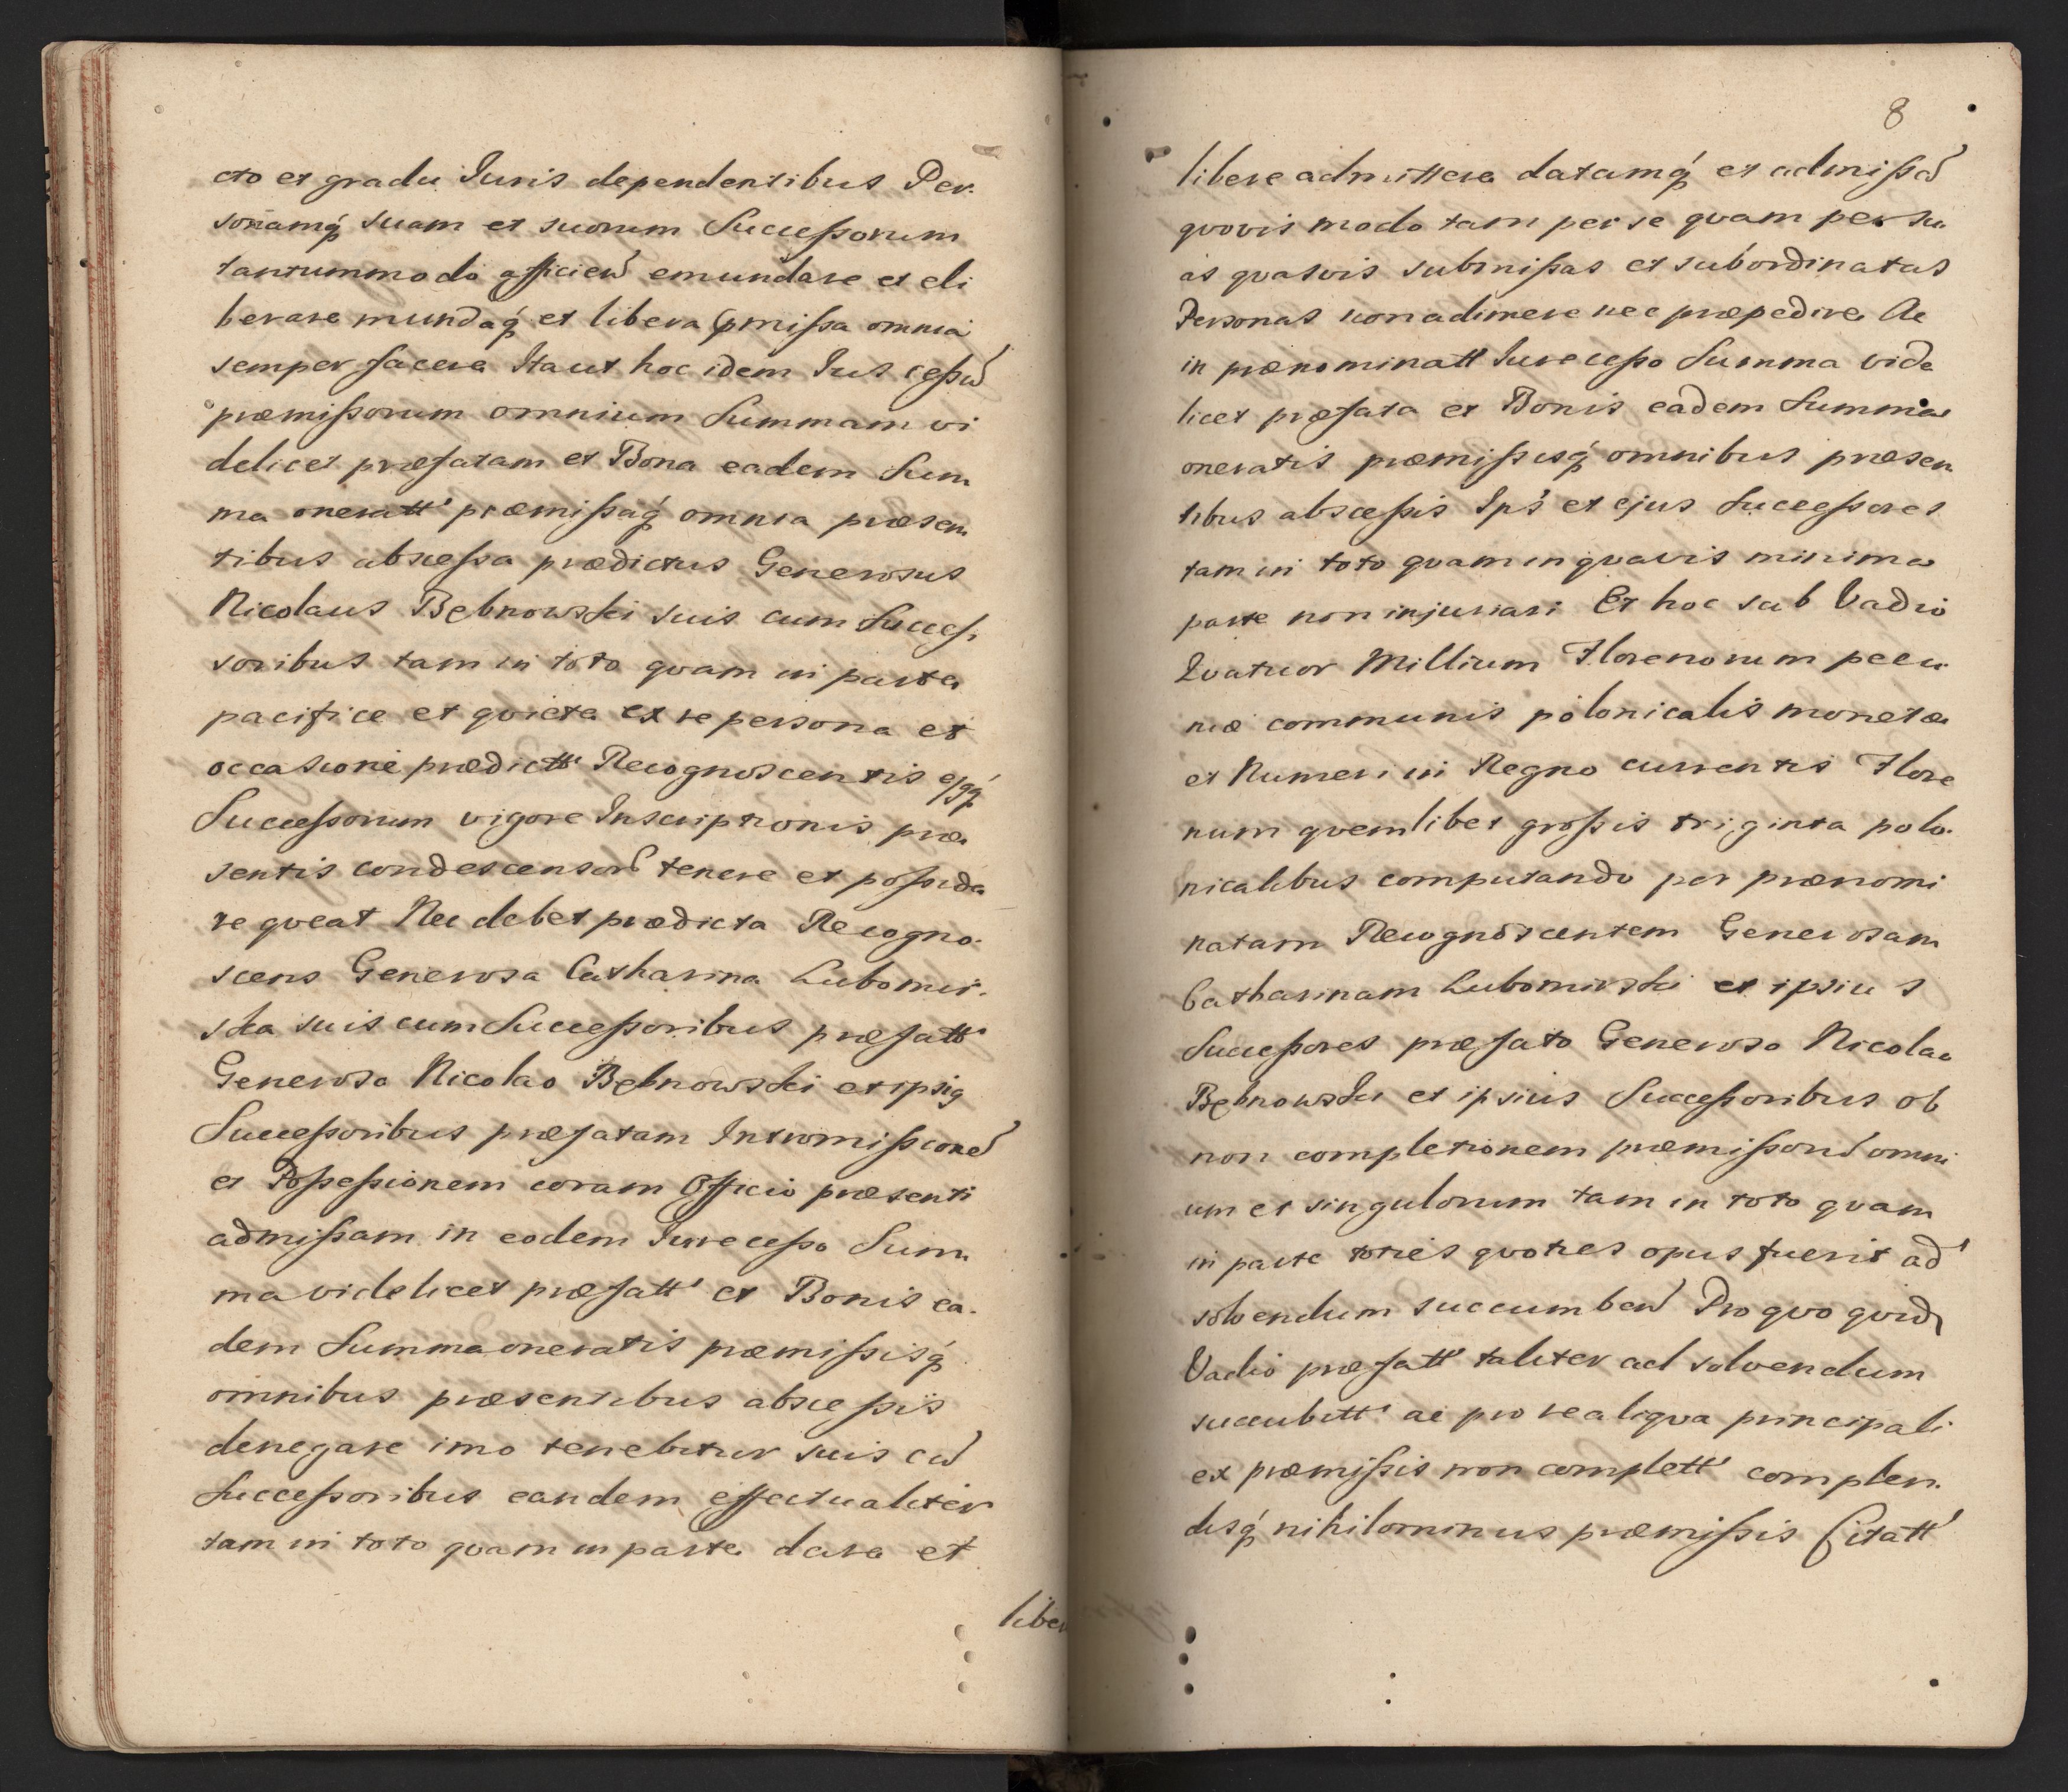 cto et gradu Iuris dependentibus Per-
sonamq́ suam et suorum Successorum
tantummodo afficien̄ emundare et eli
berare mundaq́ et libera p̄missa omnia
semper facere Itaut hoc idem Ius cessū
præmissorum omnium Summam vi
delicet præfatam et Bona eadem Sum
ma oneratt' præmissaq́ omnia præsen
tibus abscessa prædictus Generosus
Nicolaus Bębnowski suis cum Succes-
soribus tam in toto qvam in parte
pacifice et qviete ex re persona et
occasione prædictt' Recognoscentis ejqq́
Successorum vigore Inscriptionis præ
sentis condescensor̄ tenere et posside
re qveat Nec debet prædicta Recogno-
scens Generosa Catharina Lubomir-
ska suis cum Successoribus præfatt'
Generoso Nicolao Bębnowski et ipsig
Successoribus præfatam Intromissionē
et Possessionem coram Officio præsenti
admissam in eodem Iure cesso Sum
ma videlicet præfatt' et Bonis ea-
dem Summa oneratis præmissisq́
omnibus præsentibus abscessis
denegare imo tenebitur suis cū
Successoribus eandem effectualiter
tam in toto qvam in parte dare et
liber
8
libere admittere datamq́ et admissā
qvovis modo tam per se qvam per su
as qvasvis submissas et subordinatas
Personas non adimere nec præpedire Ac
in prænominatt Iure cesso Summa vide
licet præfata et Bonis eadem Summa
oneratis præmissisq́ omnibus præsen
tibus abscessis Ips̄ et ejus Successores
tam in toto qvam in qvavis minima
parte non injuriari Et hoc sub Vadio
Qvatuor Millium Florenorum pecu
niæ communis polonicalis monetæ
et Numeri in Regno currentis Flore
num qvemlibet grossis triginta polo-
nicalibus computando per prænomi
natam Recognoscentem Generosam
Catharinam Lubomirski et ipsius
Successores præfato Generoso Nicolao
Bębnowski et ipsius Successoribus ob
non completionem præmissor̄ omni
um et singulorum tam in toto qvam
in parte toties qvoties opus fuerit ad
solvendum succumben̄ Pro qvo qvidē
Vadio præfatt' taliter ad solvendum
succubitt' ac pro re aliqva principali
ex præmissis non complett' complen-
disq́ nihilominus præmissis Citatt'